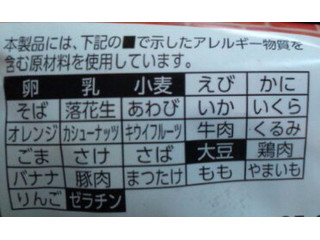 本製品には、下記の■で示したアレルギー物質を
含む原材料を使用しています。
卵 乳 小麦 えび かに
そば 落花生 あわび いか いくら
オレンジ カシューナッツ キウイフルーツ 牛肉 くるみ
ごま さけ さば 大豆 鶏肉
バナナ 豚肉 まつたけ もも やまいも
りんご ゼラチン